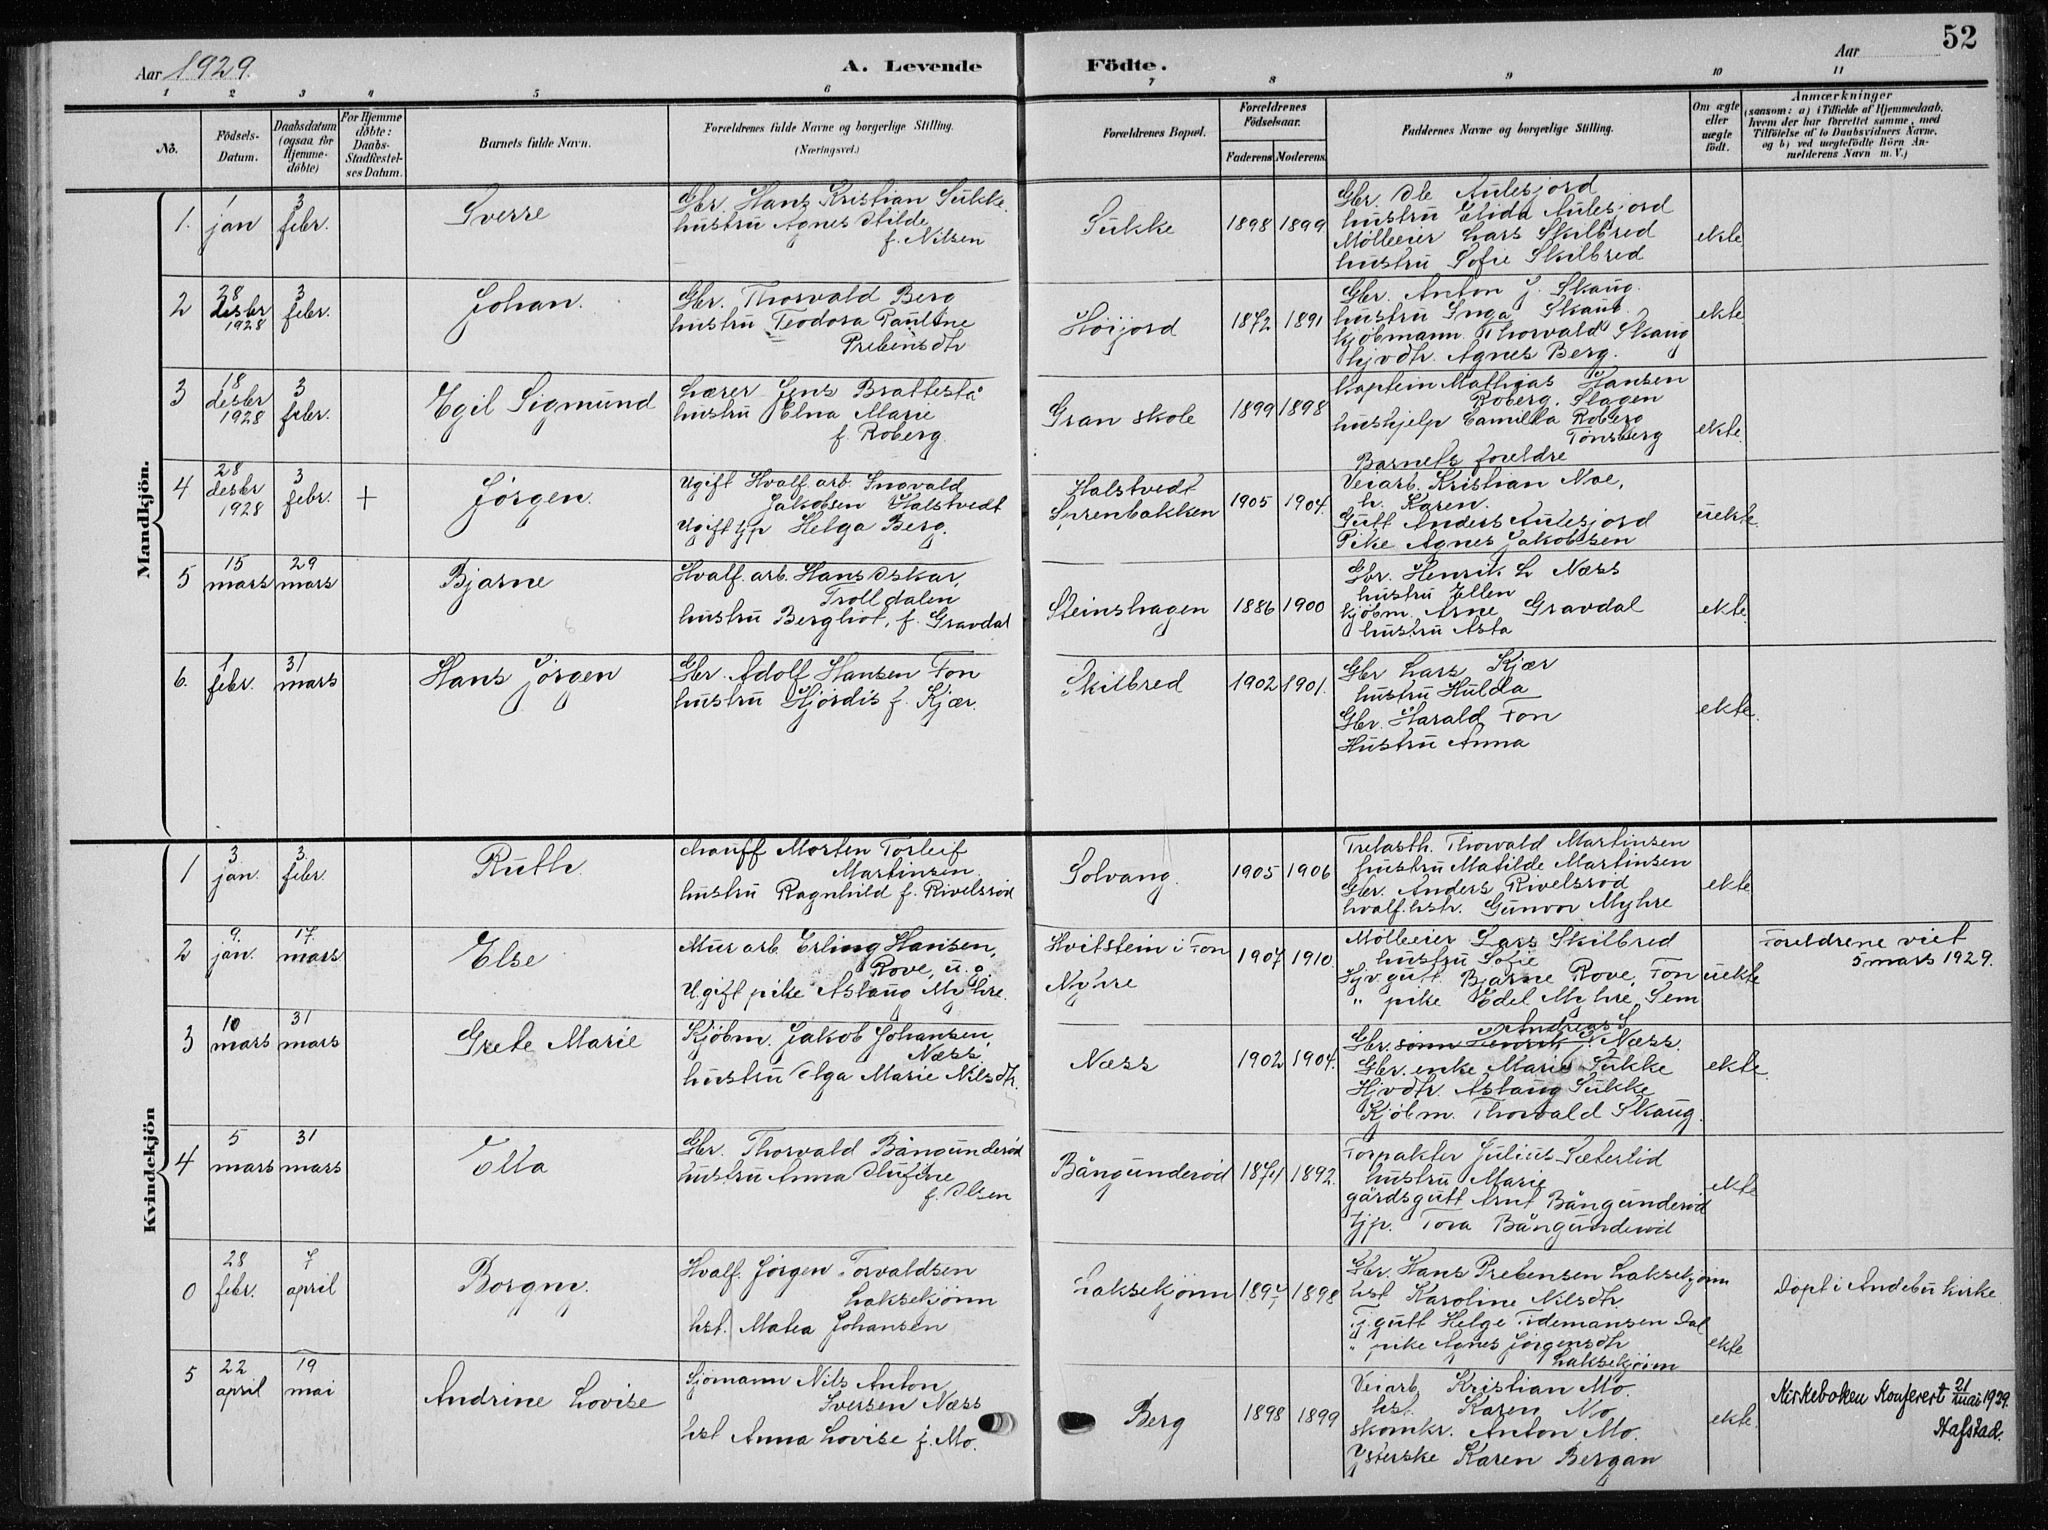 Aar 1929.
A. Levende Födte.
Aar
52
1 2 3 4 5 6 7 8 9 10 11
No.
Födsels-
Datum.
Daabsdatum
(ogsaa for
Hjemme-
döbte)
For Hjemme
döbte:
Daabs-
Stadfæstel-
ses Datum.
Barnets fulde Navn.
Forældrenes fulde Navne og borgerlige Stilling.
(Næringsvei.)
Forældrenes Bopæl.
Forældrenes
Födselsaar.
Faderens. Moderens.
Faddernes Navne og borgerlige Stilling.
Om ægte
eller
uægte
födt.
Anmærkninger
(saasom: a) i Tilfælde af Hjemmedaab.
hvem der har forrettet samme, med
Tilföielse af to Daabsvidners Navne.
og b) ved uægtefödte Börn An-
melderens Navn m. V.)
Mandkjön.
1. 1 jan 3 febr. Sverre
Gbr. Hans Kristian Sukke.
hustru Agnes Otilde
f. Nilsen
Sukke 1898 1899
Gbr. Ole Aulesjord
hustru Elida Aulesjord
Mølleeier Lars Skilbred
hustru Sofie Skilbred
ekte
2 28 desbr 1928 3 febr. Johan.
Gbr. Thorvald Berg
hustru Teodora Pauline
Prebensdtr
Høijord 1872 1891
Gbr. Anton J. Skaug.
hustru Inga Skaug.
kjøbmann Thorvald Skaug
hjvdtr. Agnes Berg.
ekte
3 18 desbr 1928 3 febr. Egil Sigmund
Lærer Jens Brattestå
hustru Elna Marie
f. Roberg.
Gran skole 1899 1898
Kaptein Mathias Hansen
Roberg, Slagen
hushjelp Camilla Roberg
Tønsberg
Barnets foreldre
ekte.
4 28 desbr 1928 3 febr. + Jørgen.
Ugift Hvalf. arb. Ingvald
Jakobsen Halstvedt
Ugift tjp Helga Berg.
Halstvedt
Sørenbakken 1905 1904.
Veiarb. Kristian Moe,
h. Karen.
Gutt Anders Aulesjord
Pike Agnes Jakobsen
uekte.
5 15 mars 29 mars Bjarne
Hvalf. arb. Hans Oskar,
Trolldalen
hustru Bergliot, f. Gravdal
Steinshagen 1886 1900
Gbr. Henrik L Næss
hustru Ellen
kjøbm. Arne Gravdal
hustru Asta
ekte.
6. 1 febr. 31 mars Hans Jørgen
Gbr. Adolf Hansen Fon
hustru Hjørdis f. Kjær.
Skilbred 1902 1901.
Gbr Lars Kjær
hustru Hulda
Gbr. Harald Fon
Hustru Anna
ekte.
Kvindekjön
1 3 jan. 3. febr. Ruth.
chauff Morten Torleif
Martinsen
hustru Ragnhild f. Rivelsrød
Solvang. 1905 1906
Trelasth. Thorvald Martinsen
hustru Matilde Martinsen
Gbr. Anders Rivelsrød
hvalf. hstr. Gunvor Myhre
ekte
2 9. jan. 17. mars Else
Mur arb. Erling Hansen,
Rove, u.g.
Ugift pike Aslaug Myhre.
Hvitstein i Fon
Myhre 1907 1910.
Mølleeier Lars Skilbred
hustru Sofie
Hjv gutt. Bjarne Rove, Fon
" pike Edel Myhre, Sem
uekte
Foreldrene viet
5 mars 1929.
3 10 mars 31 mars Grete Marie
Kjøbm. Jakob Johansen,
Næss.
hustru Olga Marie Nilsdtr.
Næss 1902 1904.
Andreas S
Gbr. sønn Henrik L. Næss.
Gbr. enke Marie Sukke
Hjvdtr. Aslaug Sukke
Kjøbm. Thorvald Skaug.
ekte.
4 5 mars 31 mars Ella
Gbr. Thorvald Bångunderød
hustru Anna Olufine
f. Olsen
Bångunderød 1874 1892.
Forpakter Julius Sæterlid
hustru Marie
gårdsgutt Arnt Bångunderød
tjp. Tora Bångunderød
ekte
0 28 febr. 7 april Borgny.
Hvalf. Jørgen Torvaldsen
Laksekjønn
hst. Matea Johansen
Laksekjønn 1894 1898
Gbr. Hans Prebensen Laksekjønn
hst Karoline Nilsdtr.
Tj. gutt Helge Tidemansen Dal
" pike Agnes Jørgensdtr
Laksekjønn
ekte
Døpt i Andebu kirke
5 22 april 19 mai Andrine Lovise
Sjømann Nils Anton
Iversen Næss
hst Anna Lovise f. Mo.
Berg 1898 1899
Veiarb. Kristian Mo.
hst. Karen Mo
skomkr. Anton Mo.
Ysterske Karen Bergan
ekte.
Kirkeboken konferert 21/mai 1929.
Hafstad.